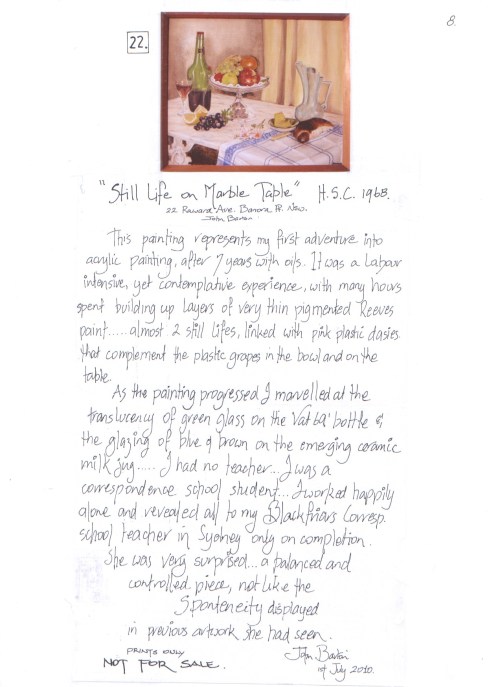 8.
22.
"Still Life on Marble Table" H.S.C. 1968.
22 Raward Ave. Banora Pt. NSW.
John Barton.
This painting represents my first adventure into
acrylic painting, after 7 years with oils. It was a labour
intensive, yet contemplative experience, with many hours
spent building up layers of very thin pigmented Reeves
paint..... almost 2 still lifes, linked with pink plastic dasies
that complement the plastic grapes in the bowl and on the
table.
As the painting progressed I marvelled at the
translucency of green glass on the 'Vat 69' bottle &
the glazing of blue & brown on the emerging ceramic
milk jug..... I had no teacher... I was a
correspondence school student... I worked happily
alone and revealed all to my Blackfriars Corresp.
school teacher in Sydney only on completion.
She was very surprised... a balanced and
controlled piece, not like the
Sponteneity displayed
in previous artwork she had seen.
PRINTS ONLY
NOT FOR SALE.
John Barton
1st July 2010.